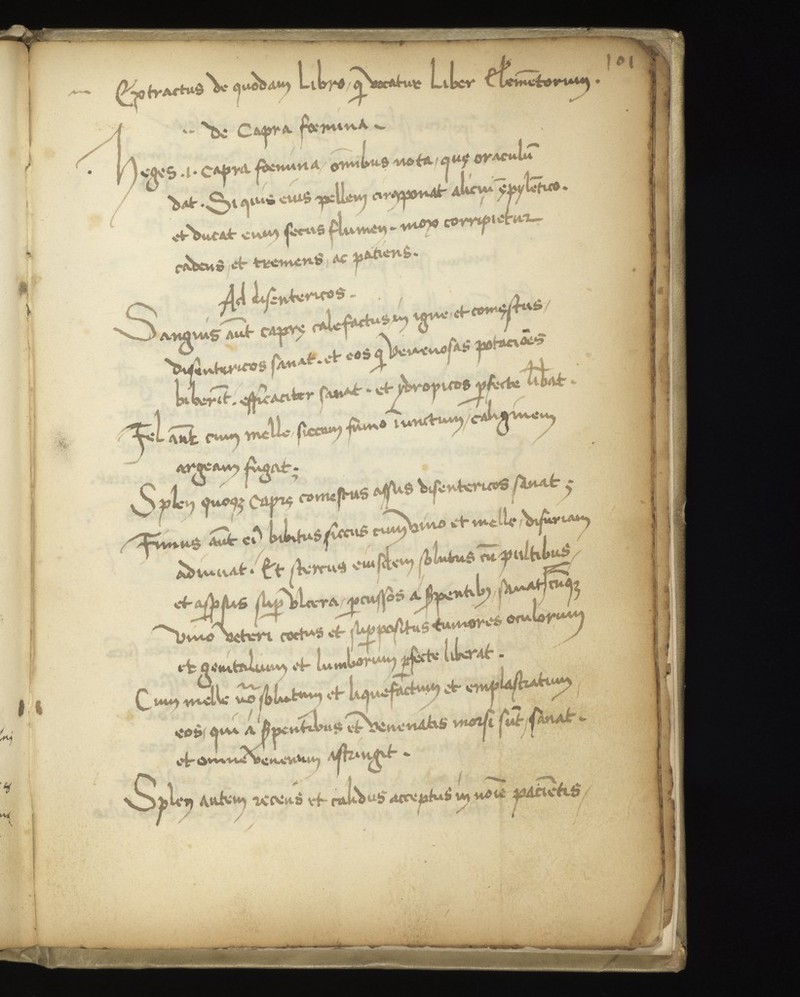 101
Extractus de quodam Libro, qͥ vocatur Liber Elemētorum.
de Capra fœmina.
Heges .i. capra fœmina, oīnibus nota, quę oraculū
dat. Si quis eius pellem circponat alicui ępylētico.
et ducat eum secus flumen. mox corripietur
cadens et tremens, ac patiens.
Ad disentericos.
Sanguis aūt caprę calefactus in igne, et comestus,
disentericos sanat. et eos qͥ venenosas potacōes
biberīt. efficaciter sanat. et ydropicos pfecte libat.
Fel aūt cum melle, siccum fumo iunctum, caliginem
argeam fugat;
Splen quoqꝫ caprę comestus assus disentericos sanat;
Fimus aūt eiꝰ bibitus siccus cum vino et melle, disuriam
adiuuat. Et stercus eiusdem solutus cū pultibus,
et aspsus sup vlcera, pcussos a spentibꝫ, sanat, cūqꝫ
vino veteri coctus et suppositus tumores oculorum
et genitalium et lumborum pfecte liberat.
Cum melle vͦo solutum et liquefactum et emplastratum
eos, qui a spentibus et venenatis morsi sūt, sanat.
et omne venenum astringit.
Splen autem recens et calidus acceptus in noīe pacientis,